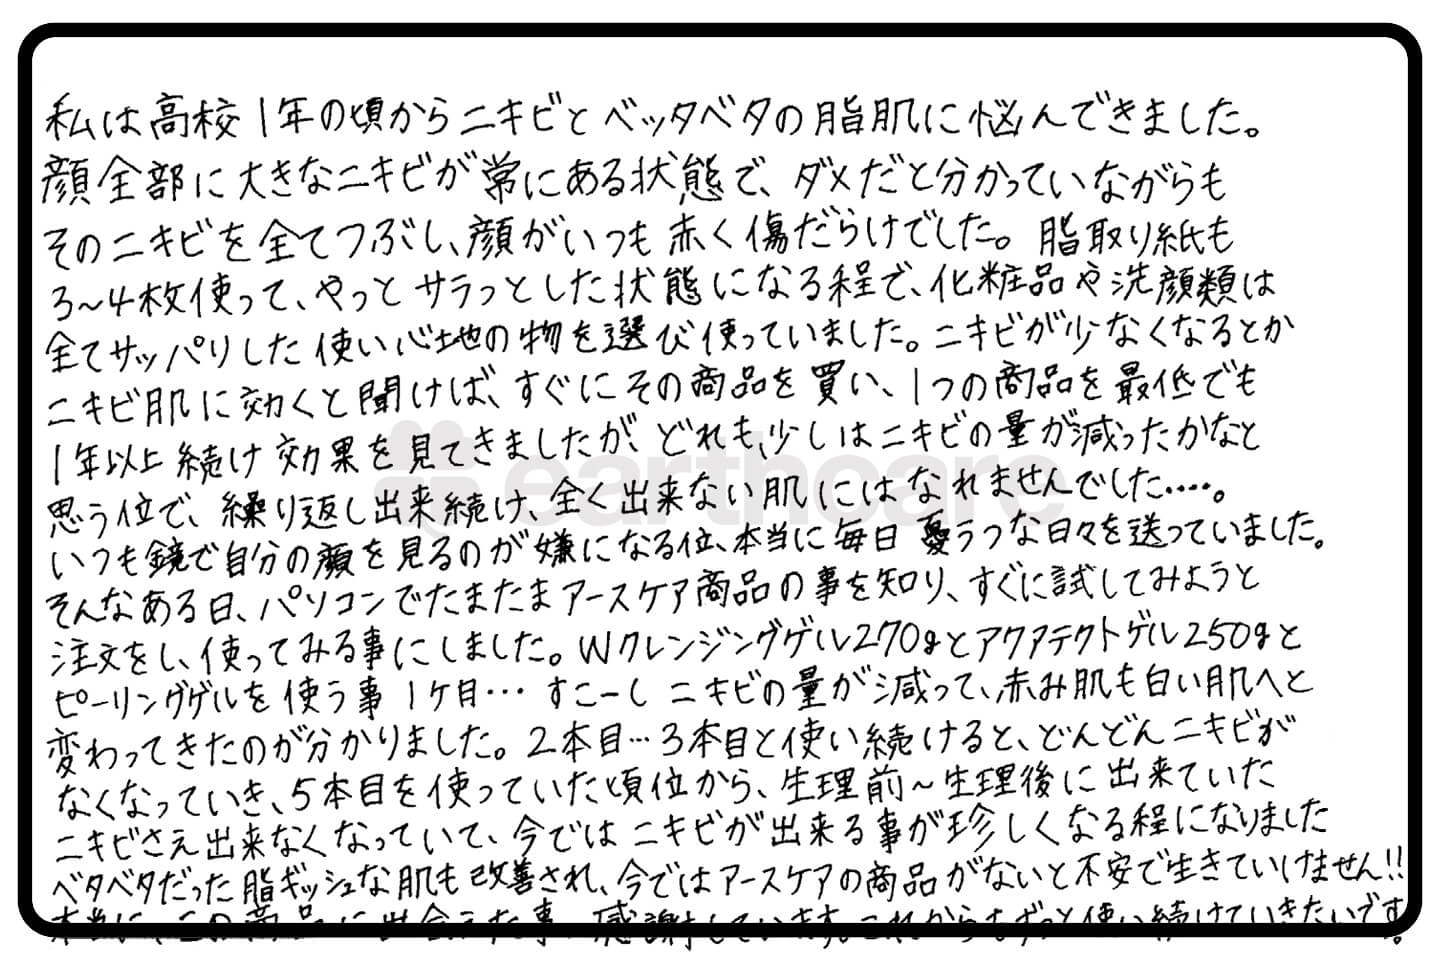 私は高校1年の頃からニキビとベッタベタの脂肌に悩んできました。
顔全部に大きなニキビが常にある状態で、ダメだと分かっていながらも
そのニキビを全てつぶし、顔がいつも赤く傷だらけでした。脂取り紙も
3~4枚使って、やっとサラっとした状態になる程で、化粧品や洗顔類は
全てサッパリした使い心地の物を選び使っていました。ニキビが少なくなるとか
ニキビ肌に効くと聞けば、すぐにその商品を買い、1つの商品を最低でも
1年以上続け効果を見てきましたが、どれも、少しはニキビの量が減ったかなと
思う位で、繰り返し出来続け、全く出来ない肌にはなれませんでした‥‥。
いつも鏡で自分の顔を見るのが嫌になる位、本当に毎日憂うつな日々を送っていました。
そんなある日、パソコンでたまたまアースケア商品の事を知り、すぐに試してみようと
注文をし、使ってみる事にしました。Wクレンジングゲル270gとアクアテクトゲル250gと
ピーリングゲルを使う事1ヶ月…すこーしニキビの量が減って、赤み肌も白い肌へと
変わってきたのが分かりました。2本目…3本目と使い続けると、どんどんニキビが
なくなっていき、5本目を使っていた頃位から、生理前~生理後に出来ていた
ニキビさえ出来なくなっていて、今ではニキビが出来る事が珍しくなる程になりました
ベタベタだった脂ギッシュな肌も改善され、今ではアースケアの商品がないと不安で生きていけません!!
本当に、この商品に出会えた事、感謝しています。これからもずっと使い続けていきたいです。
earthcare